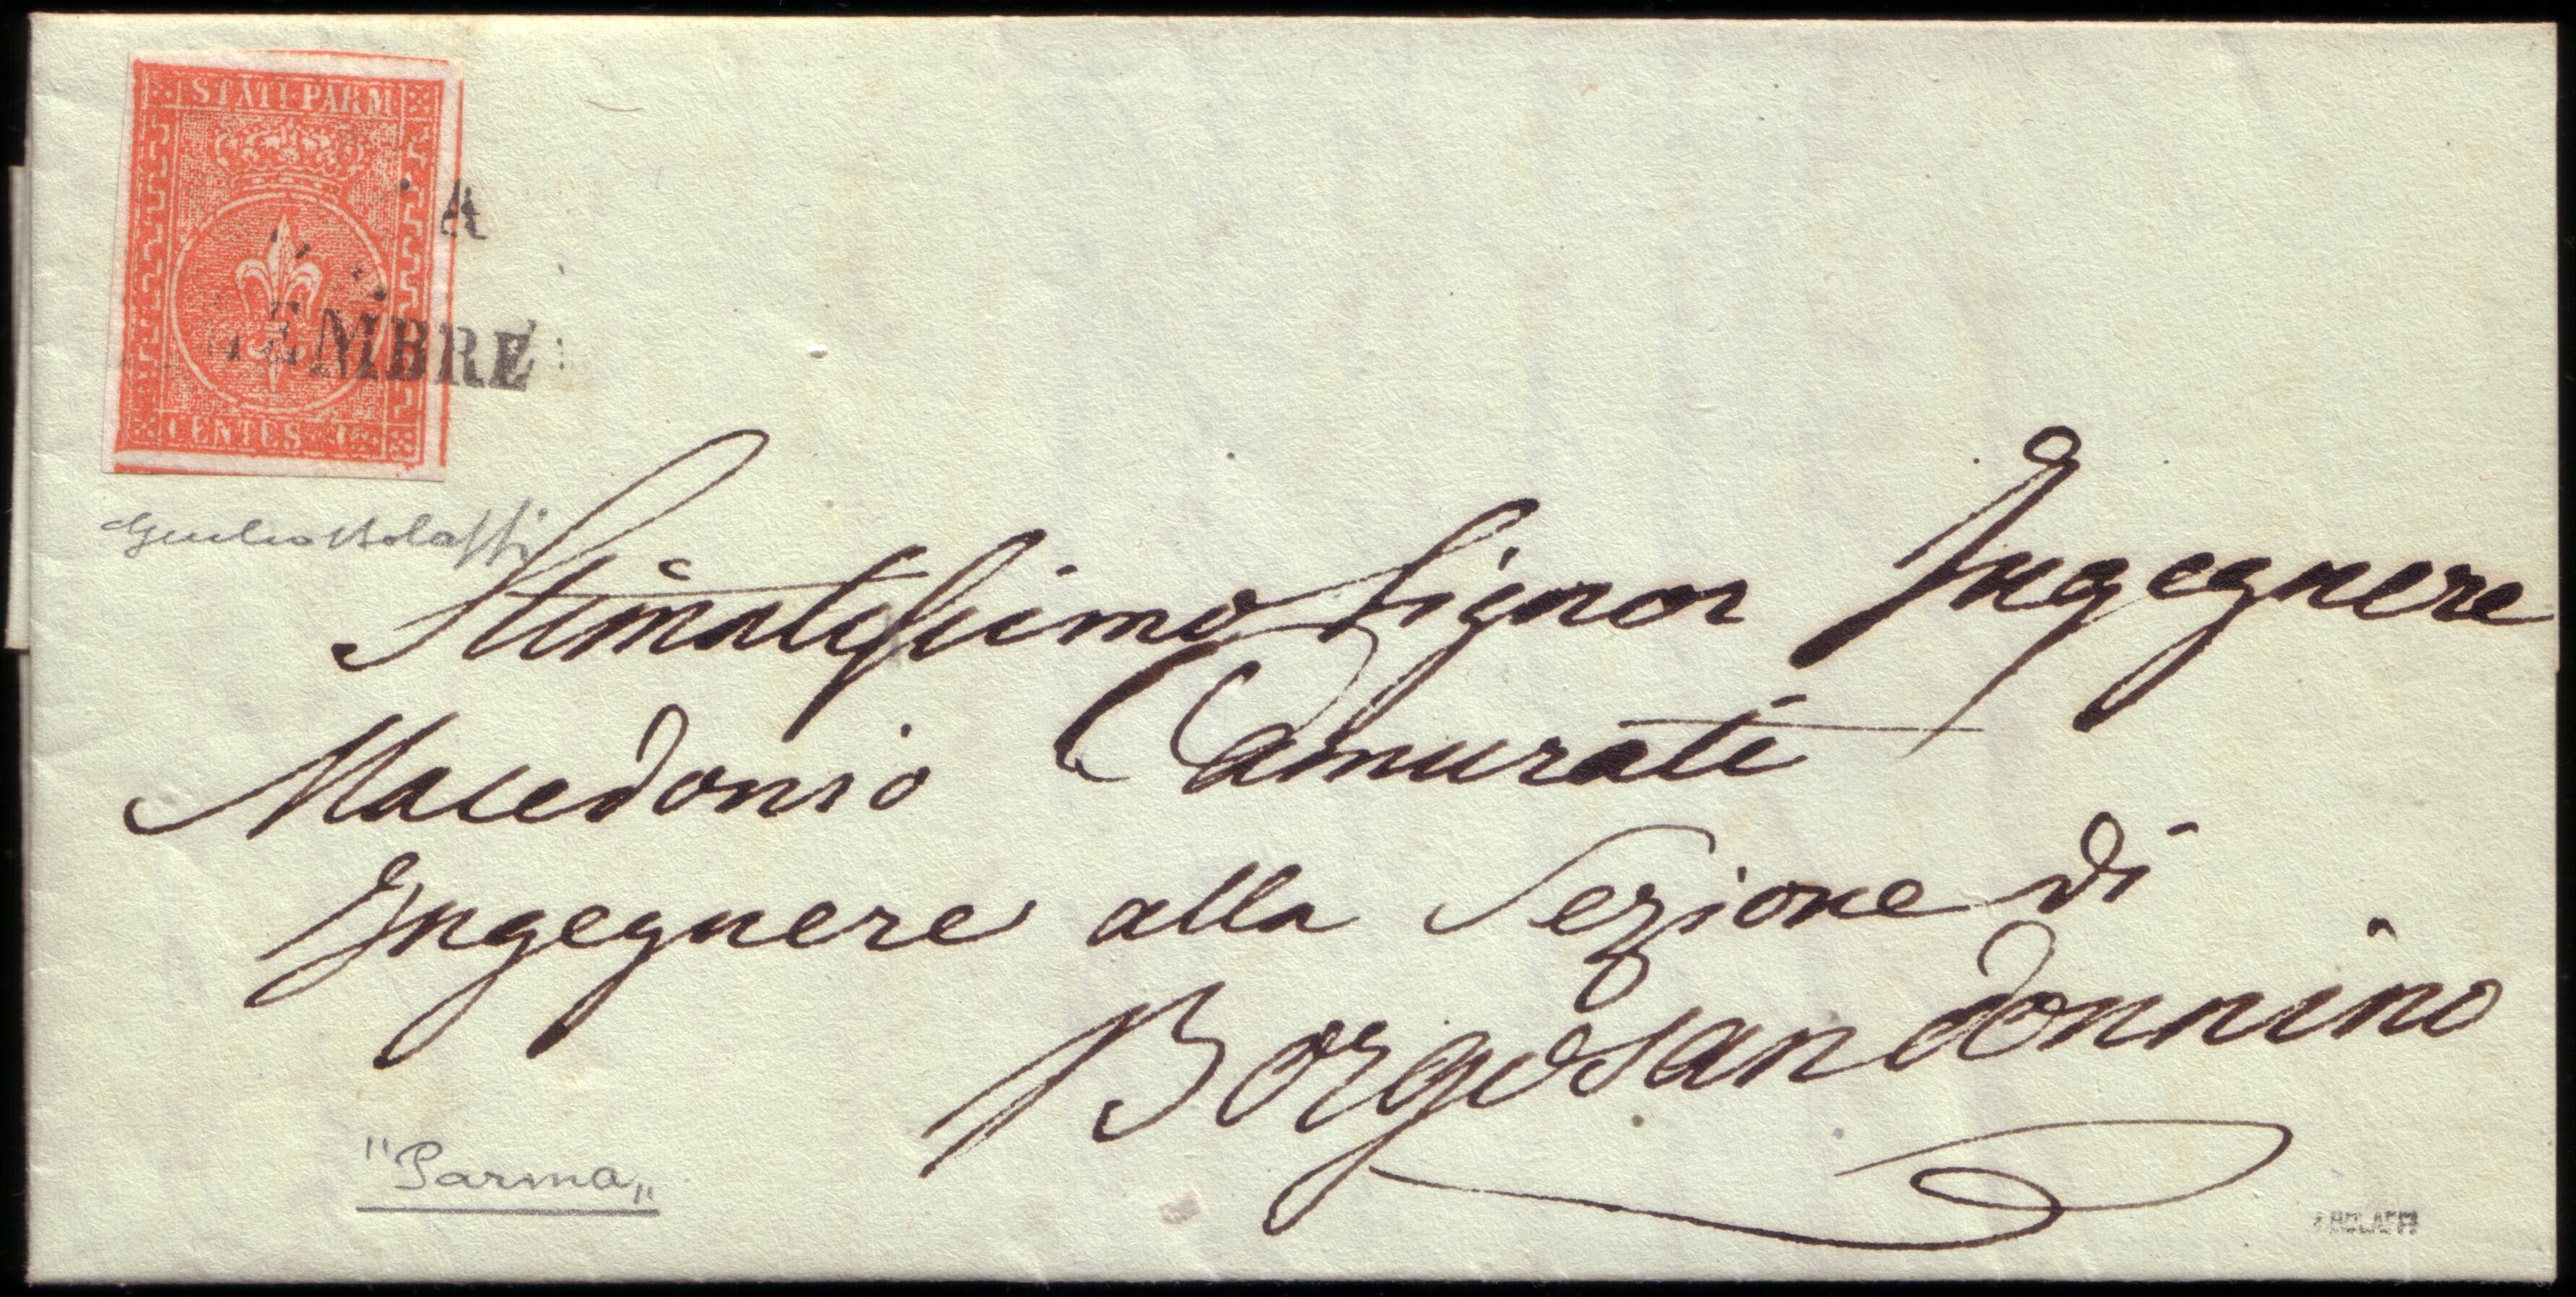 STATI PARM
A
EMBRE
CENTES. 15
Giulio Bolaffi
Stimatissimo Signor Ingegnere
Macedonio Camurati
Ingegnere alla Sezione di
Borgosandonnino
"Parma„
A BOLAFFI